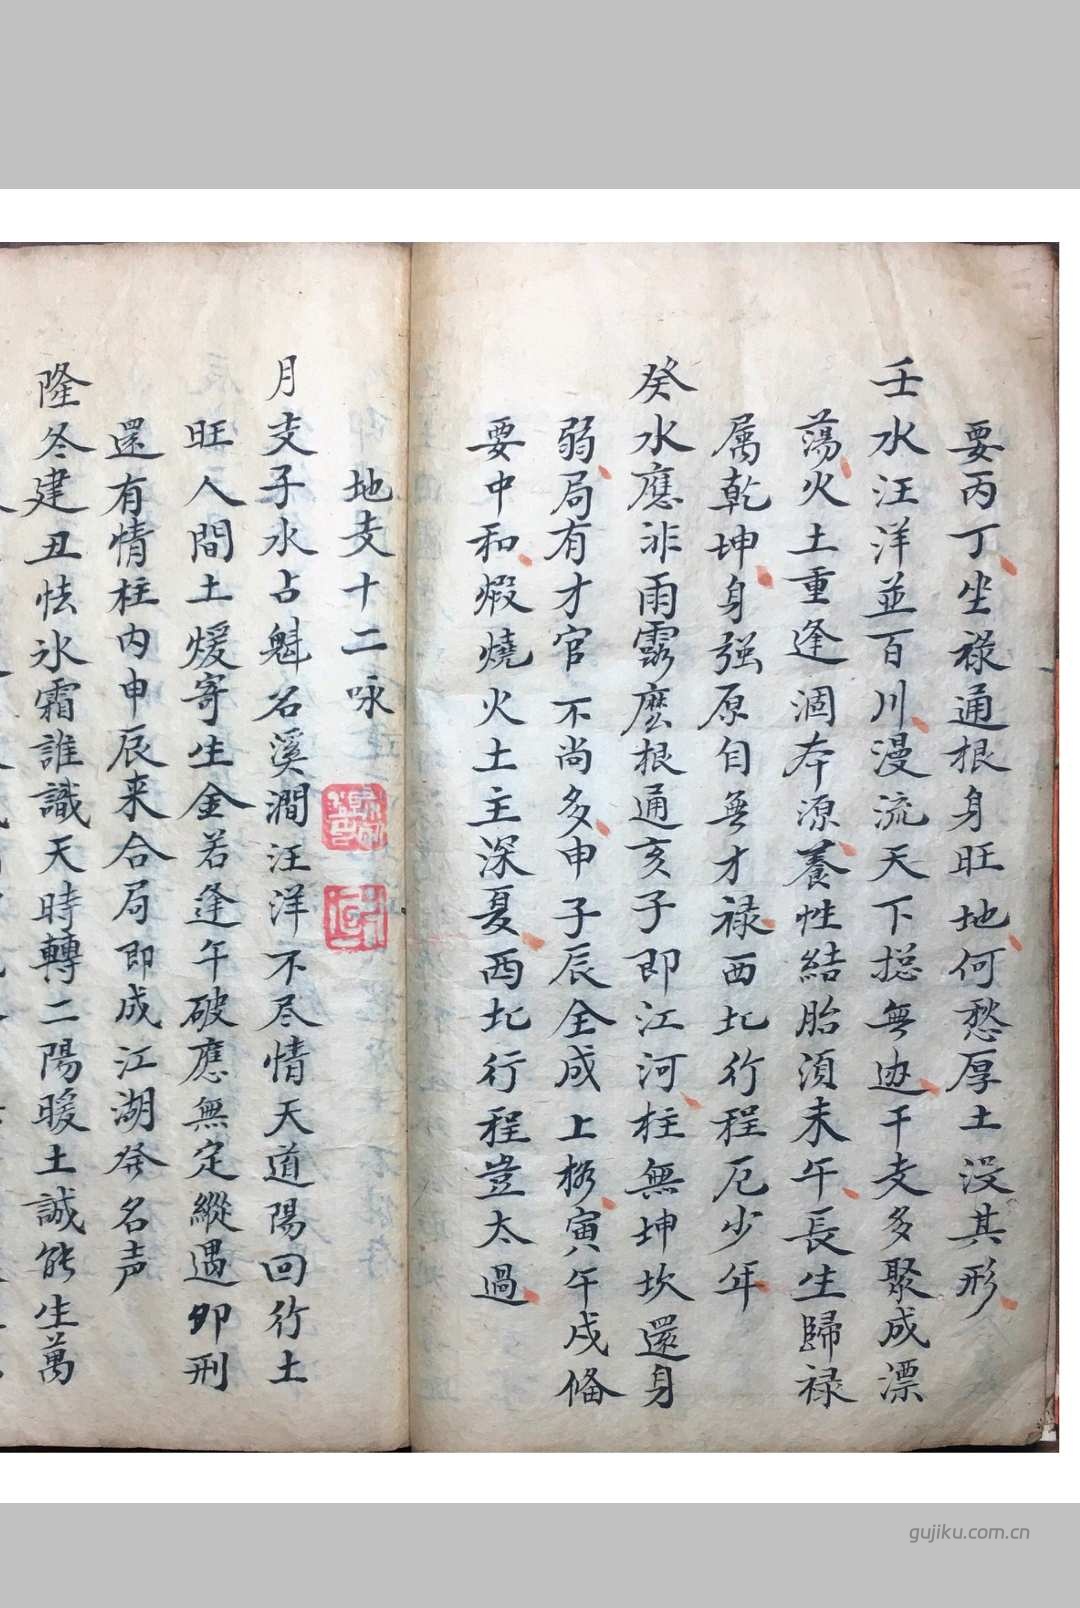 要丙丁坐祿通根身旺地何愁厚土没其形
壬水汪洋並百川漫流天下搃無边干支多聚成漂
蕩火土重逢涸夲源養性結胎湏未午長生歸祿
属乾坤身强原自無才祿西北行程厄少年
癸水應非雨露麽根通亥子即江河柱無坤坎還身
弱局有才官不尚多申子辰全成上格寅午戌俻
要中和煆燒火土主深夏西北行程豈太過
地支十二咏
月支子水占魁名溪澗汪洋不尽情天道陽回行土
旺人間土煖寄生金若逢午破應無定縱遇卯刑
還有情柱内申辰来合局即成江湖発名声
隆冬建丑怯氷霜誰識天時轉二陽暖土誠能生萬
gujiku.com.cn